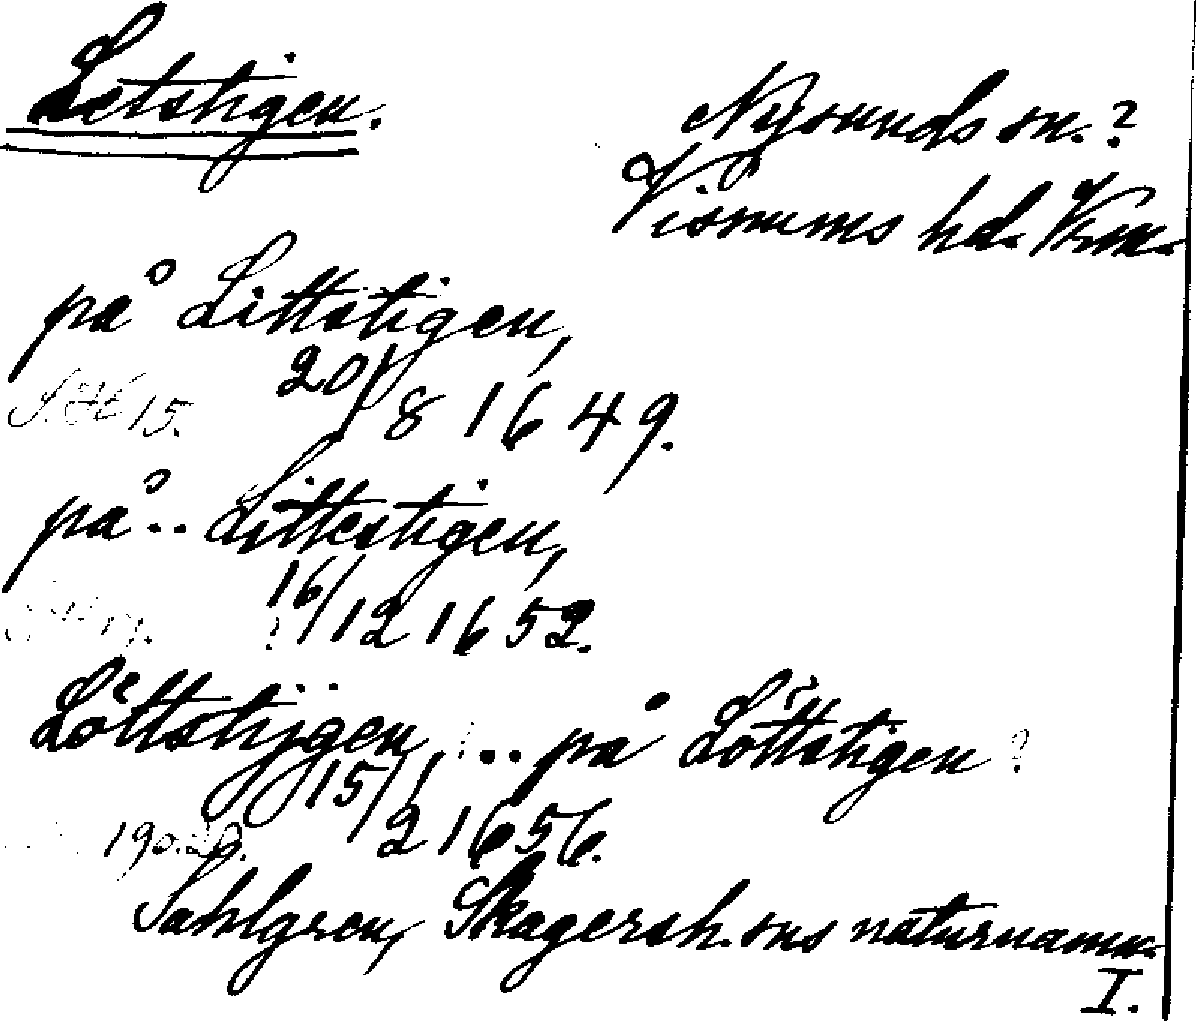 Letstigen.
Nysunds sn.?
Visnums hd. Vrm.
på Littstigen,
20/8 1649.
på .. Littestigen,
16/12 1652.
Löttstijgen, ... på Löttstigen?
15/2 1656.
Sahlgren, Skagersh. sns naturnamn
I.